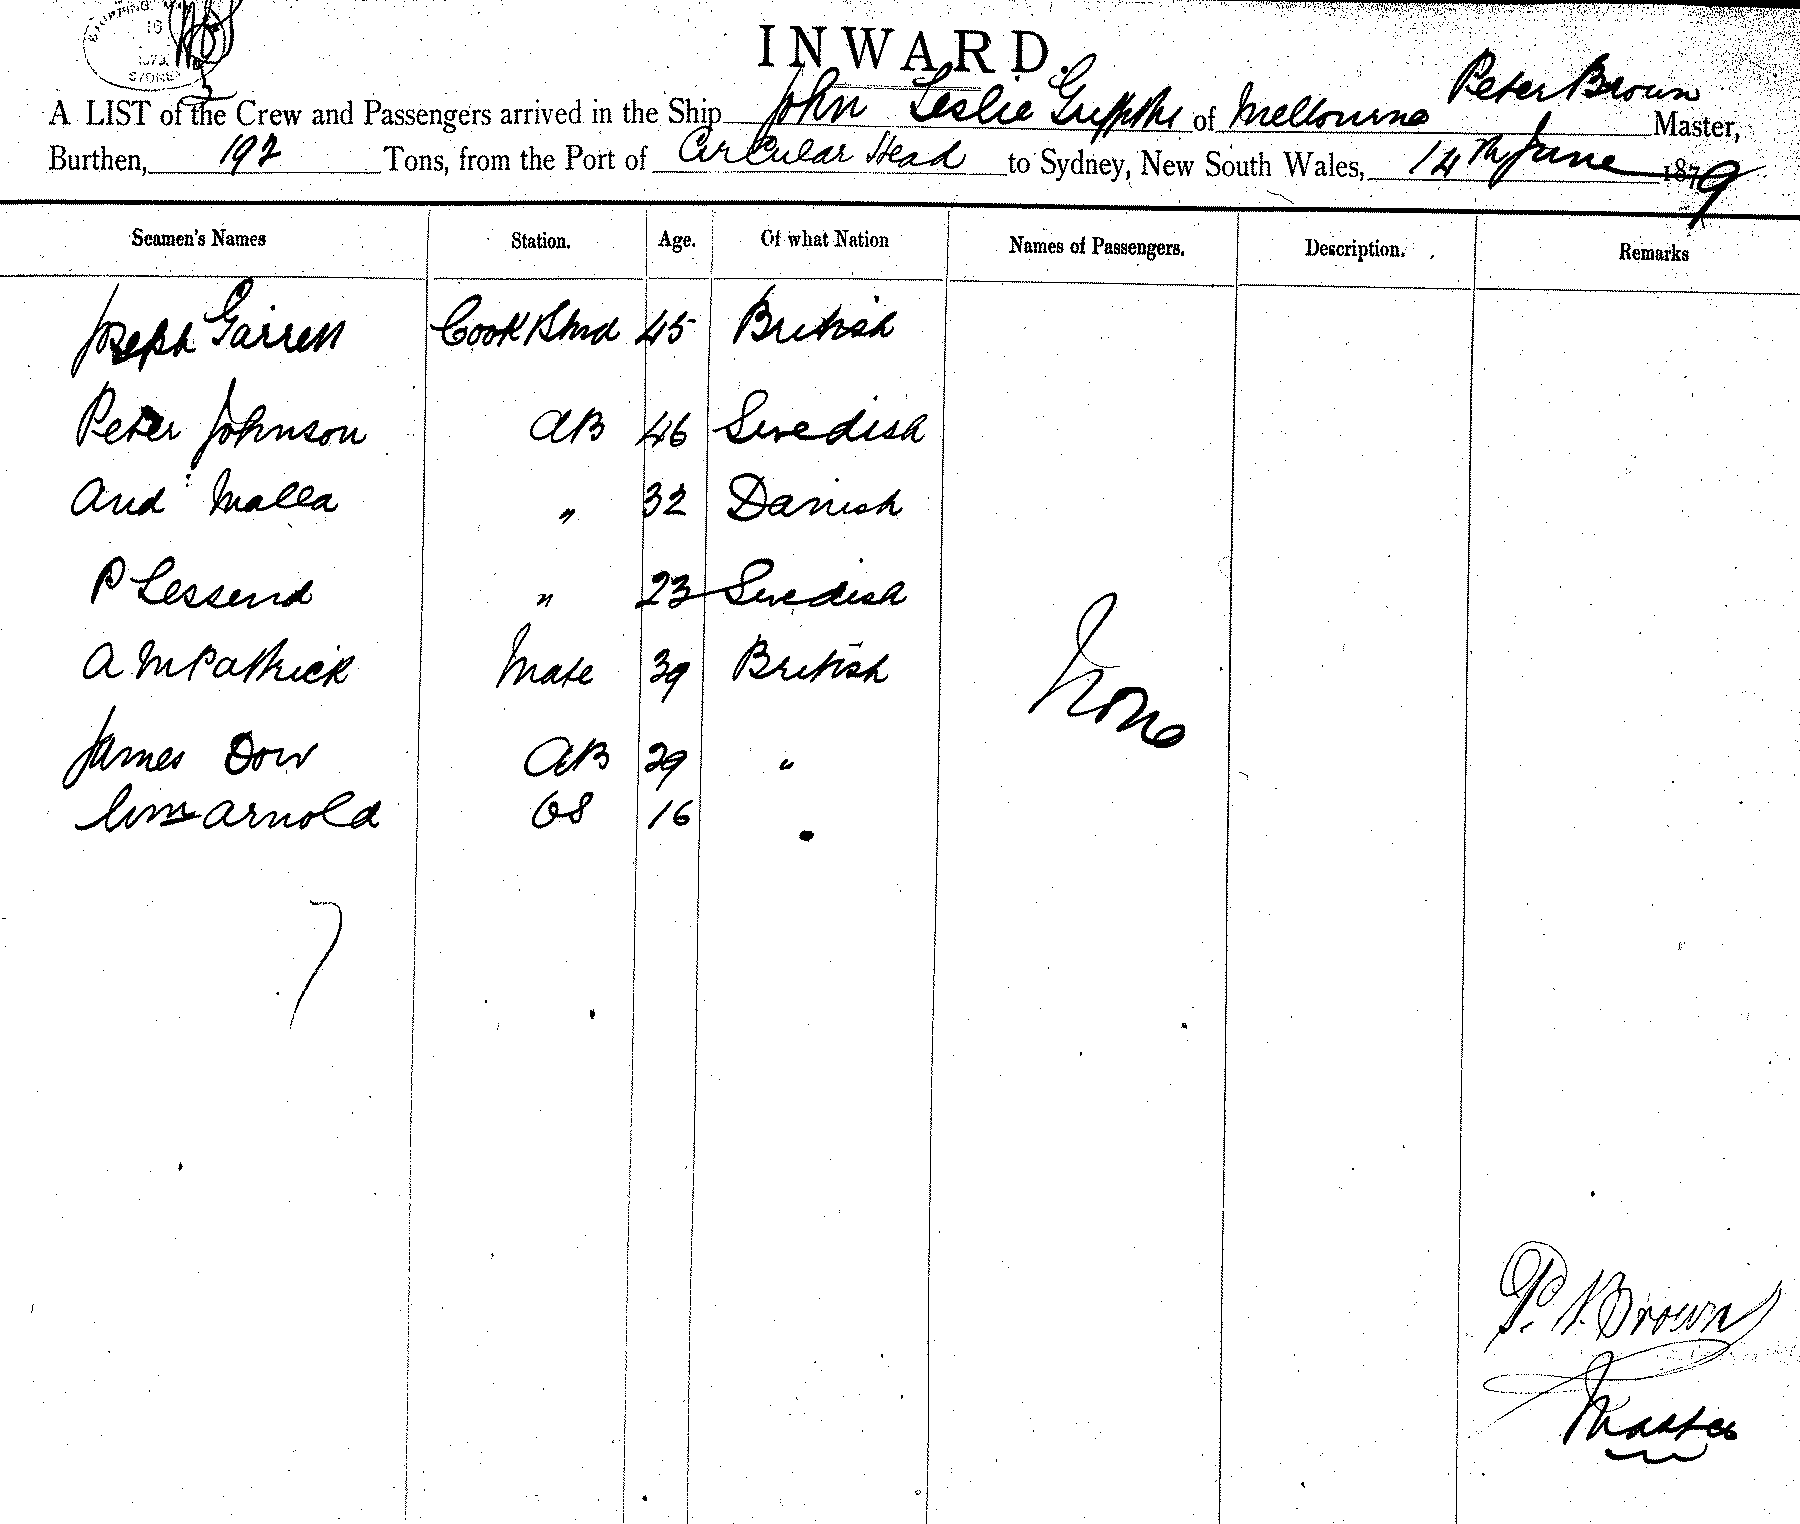 SYDNEY
INWARD.
Peter Brown
A LIST of the Crew and Passengers arrived in the Ship John Leslie Griffiths of Melbourne Master,
Burthen, 192 Tons, from the Port of Circular Head to Sydney, New South Wales, 14th June 1879
Seamen's Names Station. Age. Of what Nation Names of Passengers. Description. Remarks
Joseph Garrett Cook & Std 45 British
Peter Johnson AB 46 Swedish
And Malla " 32 Danish
P Lessend " 23 Swedish
A McPatrick Mate 39 British
None
James Dow AB 29 "
Wm Arnold OS 16 "
7
P. Brown
Master